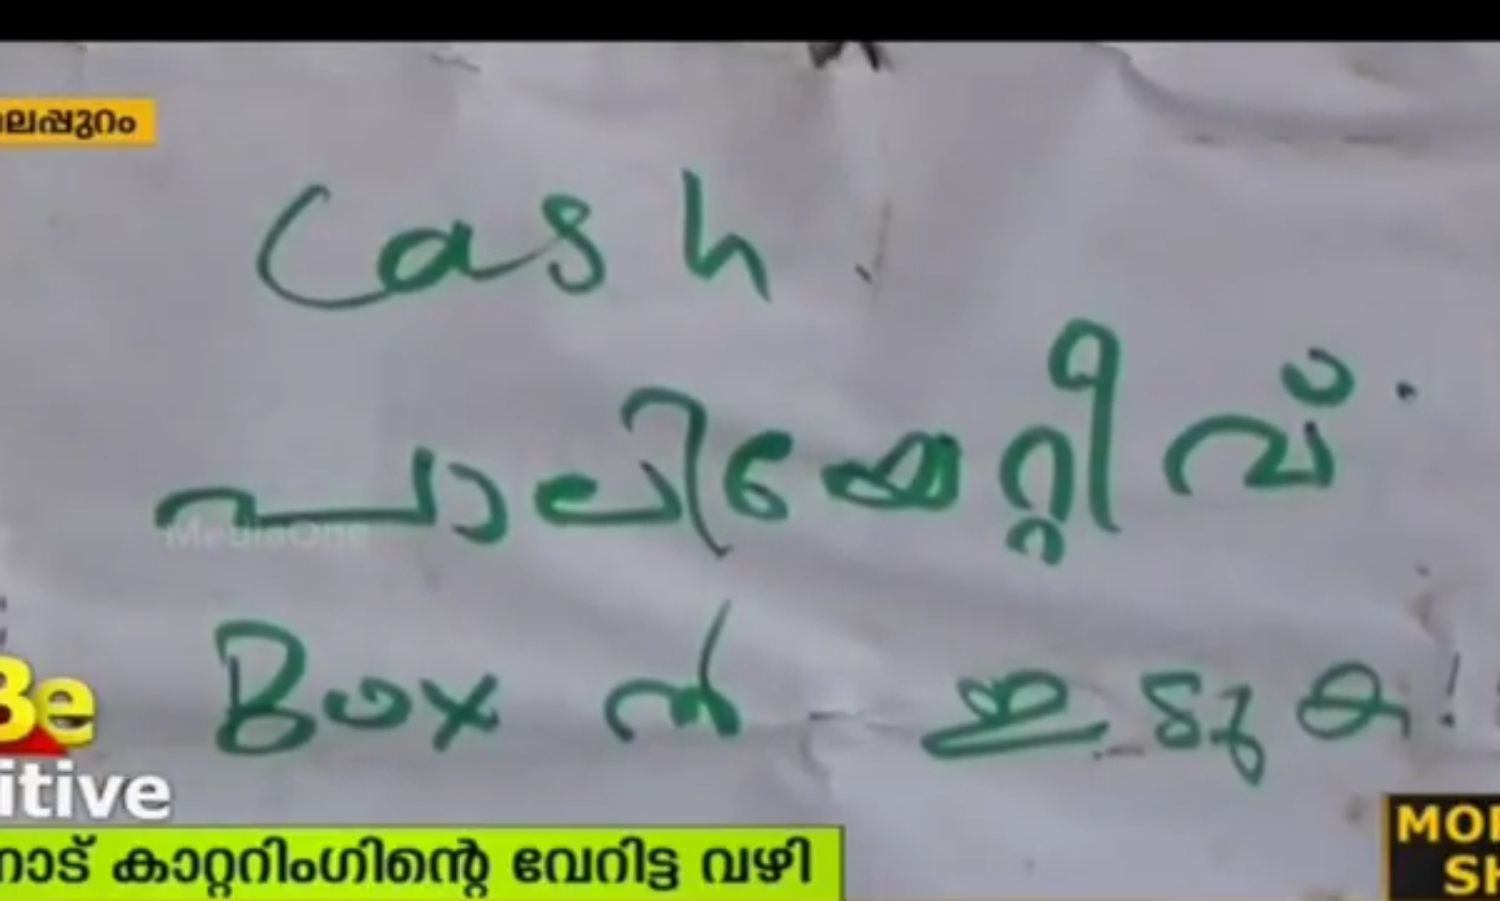 ലപ്പുറം
Cash
പാലിയേറ്റീവ്
MediaOne
Box ൽ ഇടുക!
Be
itive
നാട് കാറ്ററിംഗിന്റെ വേറിട്ട വഴി
MOR
SH